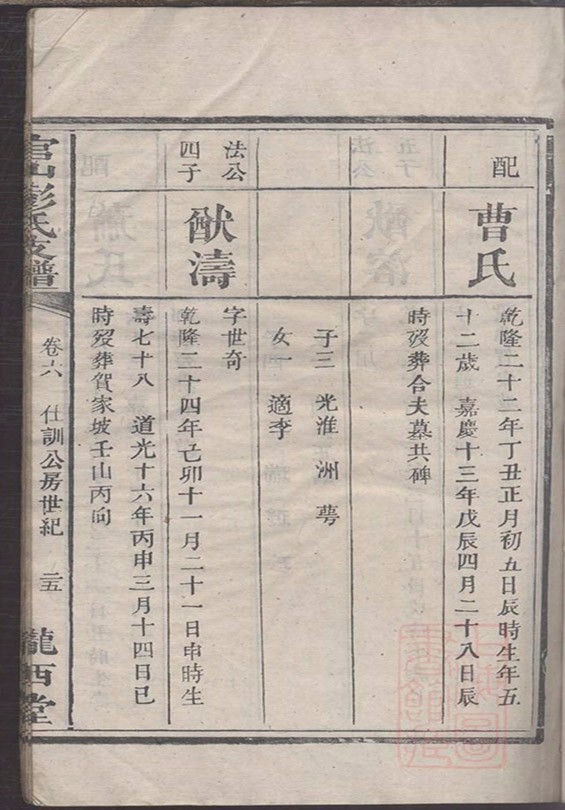 配
曹氏
乾隆二十二年丁丑正月初五日辰時生年五
十二歲 嘉慶十三年戊辰四月二十八日辰
時歿葬合夫墓共碑
子三 光淮 洲 蕚
女一 適李
法公
四子
猷濤
字世奇
乾隆二十四年己卯十一月二十一日申時生
壽七十八 道光十六年丙申三月十四日巳
時歿葬賀家坡壬山丙向
官山彭氏支譜
卷六 仕訓公房世紀 二五
隴西堂